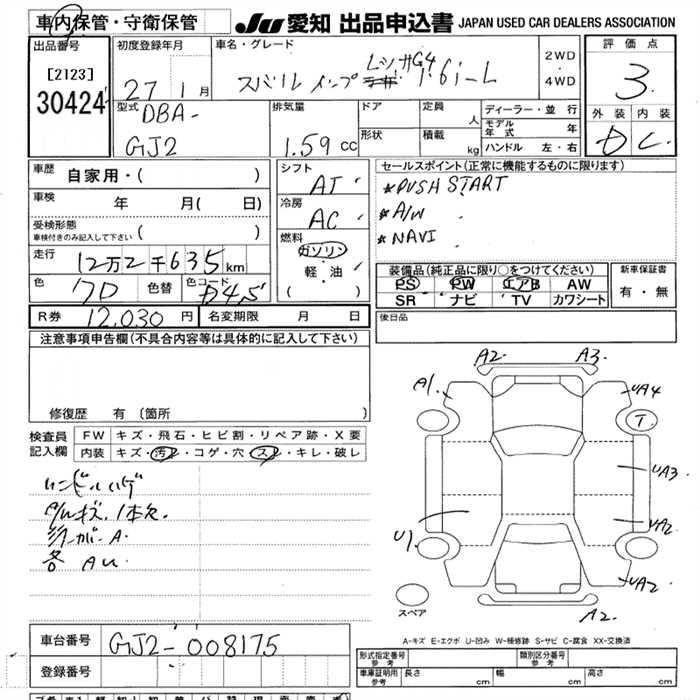 車内保管・守衛保管
JU 愛知 出品申込書 JAPAN USED CAR DEALERS ASSOCIATION
出品番号
[2123]
30424
初度登録年月
27 1月
車名・グレード
スバル インプレッサG4 1.6i-L
2WD
4WD
評価点
3
外装 内装
D C
型式
DBA-
GJ2
排気量
1.59cc
ドア
形状
定員 人
積載 kg
ディーラー・並行
モデル年式 年
ハンドル 左・右
車歴 自家用・( )
車検 年 月( 日)
受検形態
車検付きのみ記入して下さい ( )
走行 12万2千635km
色 クロ 色替 色コード D4S
R券 12,030円 名変期限 月 日
シフト
AT
冷房
AC
燃料
ガソリン
・
軽・油
( )
セールスポイント(正常に機能するものに限ります)
★PUSH START
★A/W
★NAVI
装備品(純正品に限り○をつけてください)
PS PW エアB AW
SR ナビ TV カワシート
新車保証書
有・無
後日品
注意事項申告欄(不具合内容等は具体的に記入して下さい)
修復歴 有 〔箇所 〕
検査員
記入欄
FW キズ・飛石・ヒビ割・リペア跡・X要
内装 キズ・汚レ・コゲ・穴・スレ・キレ・破レ
ハンドルハゲ
P/Wキズ、1本欠
ミラーカバーA.
各 AU
A2
A3
A1
UA4
T
UA3
U1
UA2
UA2
A2
スペア
A-キズ E-エクボ U-凹み W-補修跡 S-サビ C-腐食 XX-交換済
車台番号 GJ2-008175
登録番号
形式指定番号
参考
類別区分番号
参考
車庫証明用
参考
長さ cm 幅 cm 高さ cm